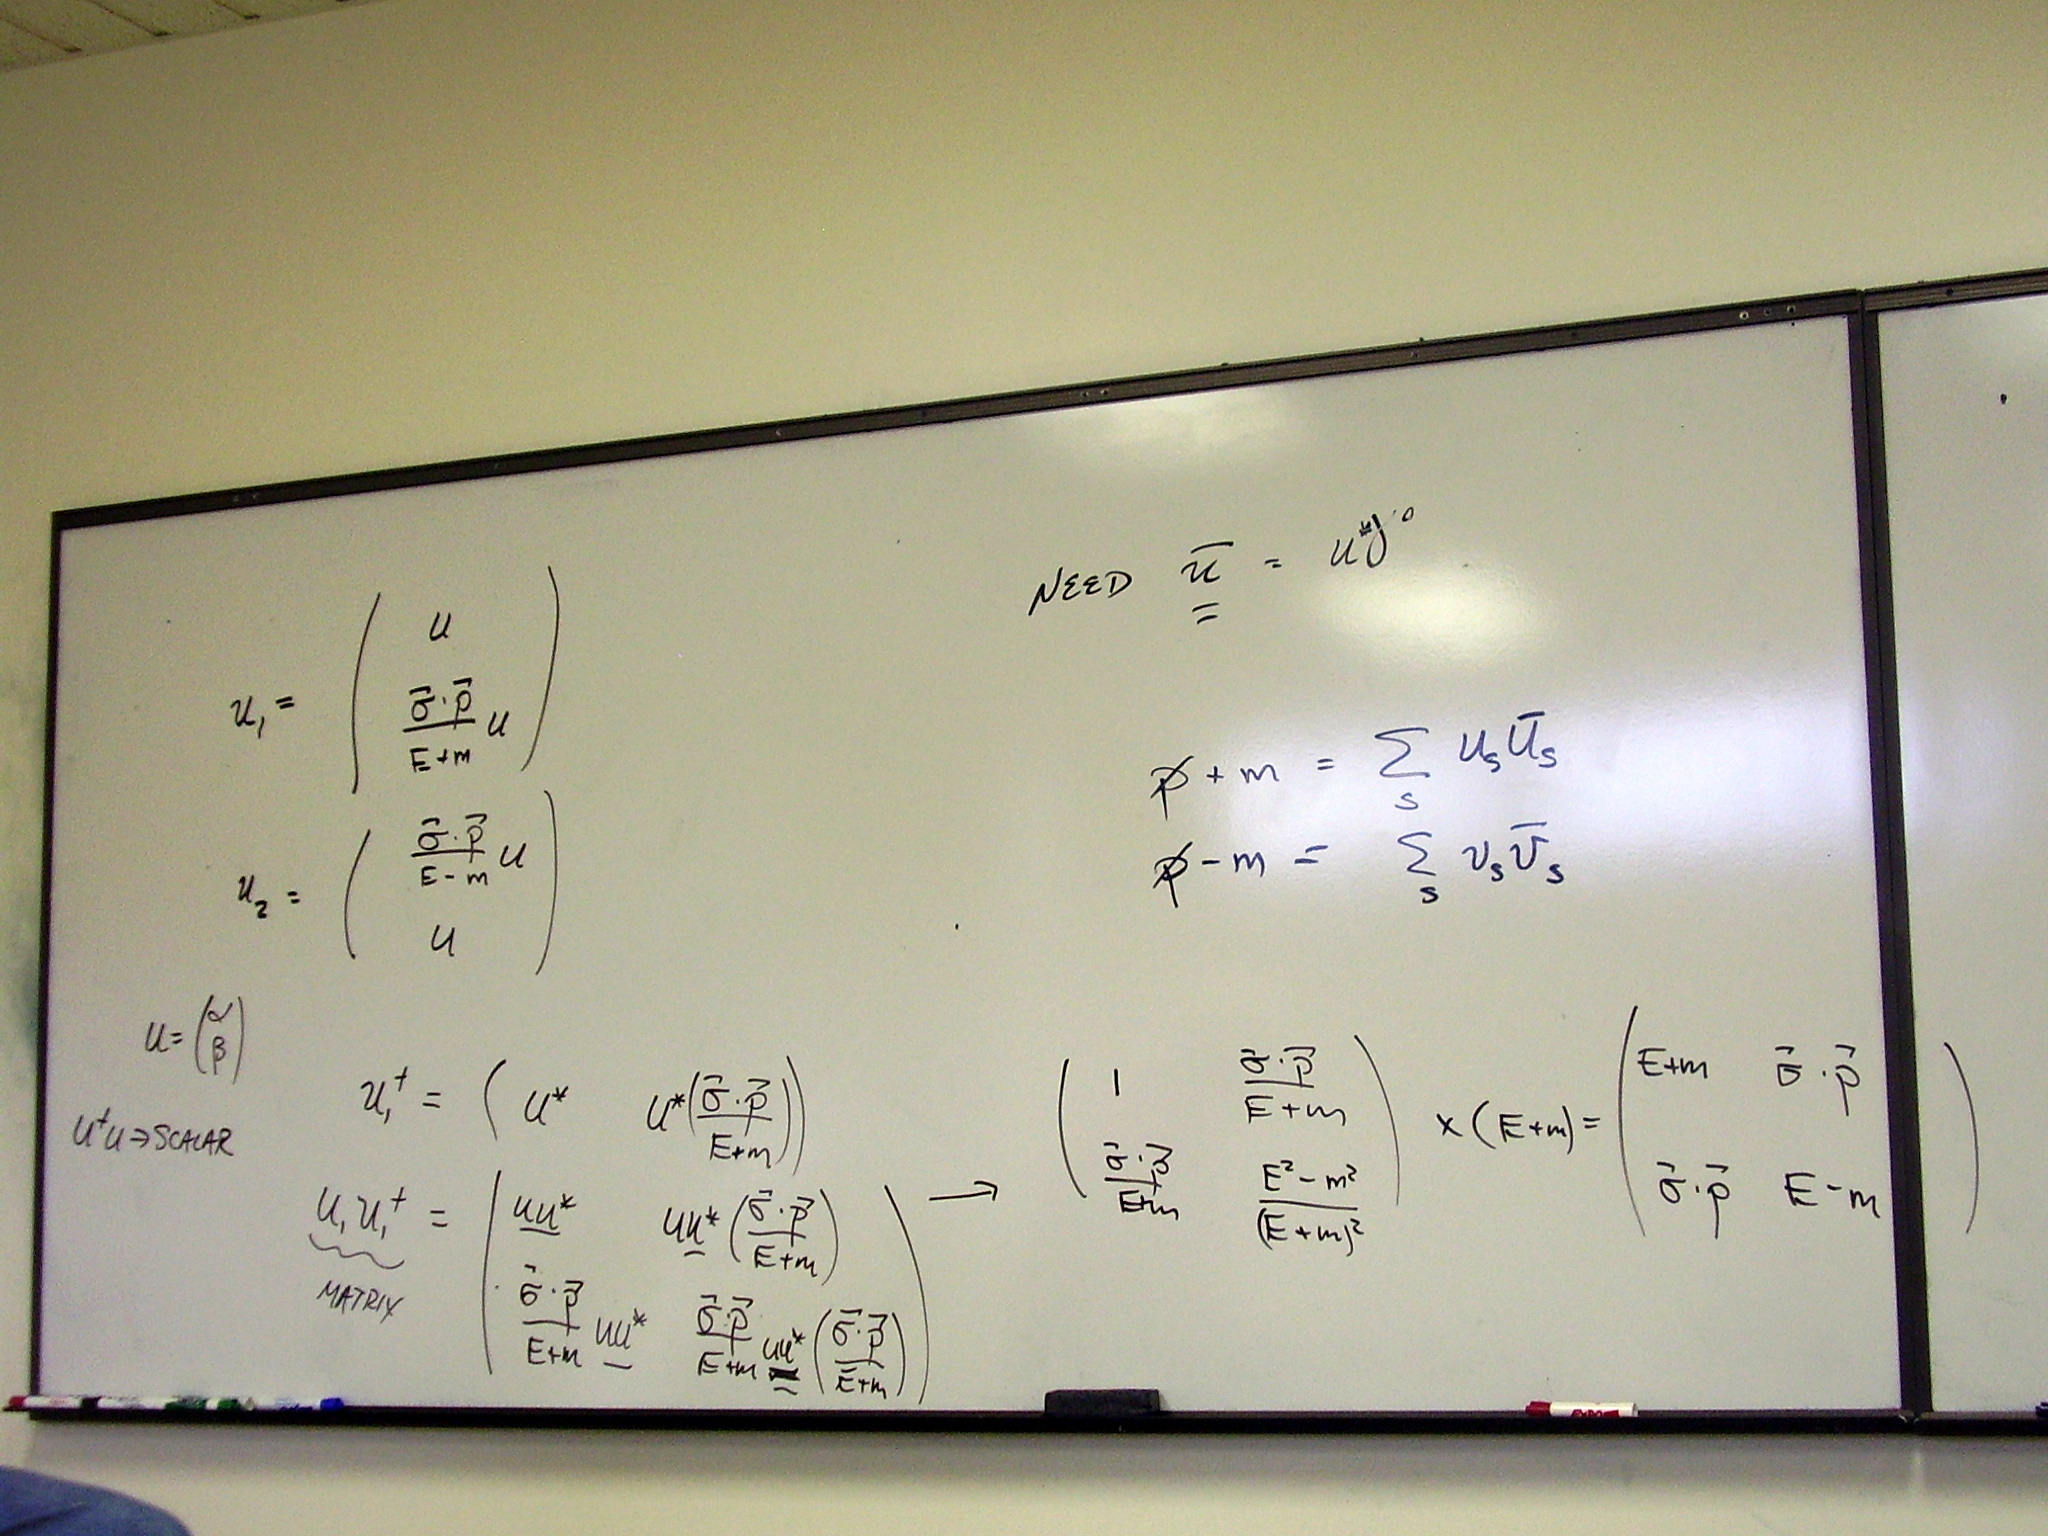 NEED ū = u*γ⁰
u₁ = ( u ; (σ⃗·p⃗)/(E+m) u )
p̸ + m = Σ_s u_s ū_s
u₂ = ( (σ⃗·p⃗)/(E-m) u ; u )
p̸ - m = Σ_s v_s v̄_s
u = ( α ; β )
u†u ⇒ SCALAR
u₁† = ( u* u*( (σ⃗·p⃗)/(E+m) ) )
u₁u₁† = ( uu* uu*( (σ⃗·p⃗)/(E+m) ) ; (σ⃗·p⃗)/(E+m) uu* (σ⃗·p⃗)/(E+m) uu* ( (σ⃗·p⃗)/(E+m) ) ) → ( 1 (σ⃗·p⃗)/(E+m) ; (σ⃗·p⃗)/(E+m) (E²-m²)/(E+m)² ) x (E+m) = ( E+m σ⃗·p⃗ ; σ⃗·p⃗ E-m )
MATRIX
EXPO